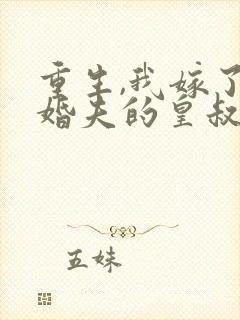 重生,我嫁了
婚夫的皇叔
五妹